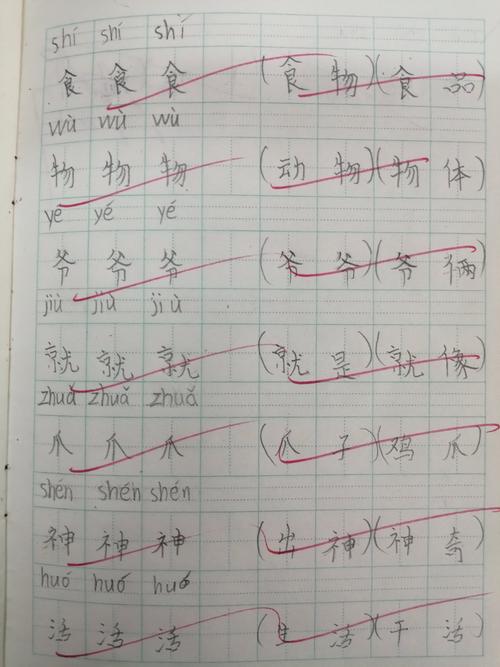 shí shí shí
食 食 食 (食 物)(食 品
wù wù wù
物 物 物 (动 物)(物 体)
yé yé yé
爷 爷 爷 (爷 爷)(爷 俩
jiù jiù jiù
就 就 就 (就 是)(就 像
zhuǎ zhuǎ zhuǎ
爪 爪 爪 (爪 子)(鸡 爪)
shén shén shén
神 神 神 (出 神)(神 奇)
huó huó huó
活 活 活 (生 活)(干 活)